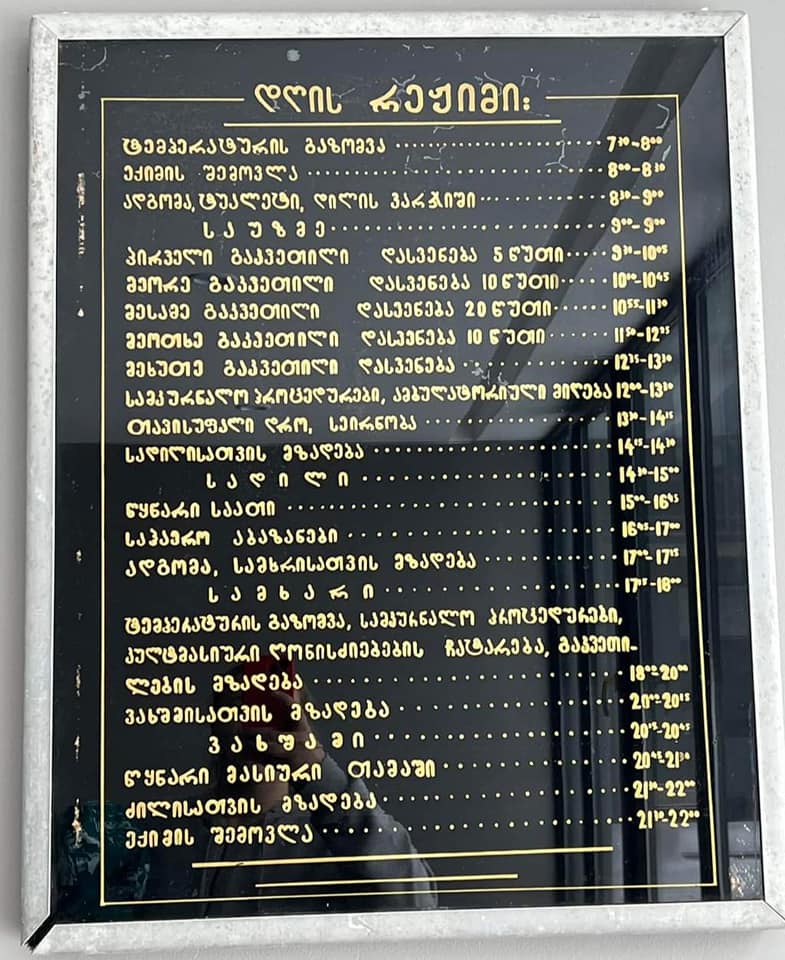 დღის რეჟიმი:
ტემპერატურის გაზომვა 7³⁰-8⁰⁰
ექიმის შემოვლა 8⁰⁰-8³⁰
ადგომა, ტუალეტი, დილის ვარჯიში 8³⁰-9⁰⁰
საუზმე 9⁰⁰-9⁰⁰
პირველი გაკვეთილი დასვენება 5 წუთი 9³⁰-10⁰⁵
მეორე გაკვეთილი დასვენება 10 წუთი 10¹⁰-10⁴⁵
მესამე გაკვეთილი დასვენება 20 წუთი 10⁵⁵-11³⁰
მეოთხე გაკვეთილი დასვენება 10 წუთი 11⁵⁰-12²⁵
მეხუთე გაკვეთილი დასვენება 12³⁵-13¹⁰
სამკურნალო პროცედურები, ამბულატორიული მიღება 12⁰⁰-13³⁰
თავისუფალი დრო, სეირნობა 13³⁰-14¹⁵
სადილისათვის მზადება 14¹⁵-14³⁰
სადილი 14³⁰-15⁰⁰
წყნარი საათი 15⁰⁰-16⁴⁵
საჰაერო აბაზანები 16⁴⁵-17⁰⁰
ადგომა, სამხრისათვის მზადება 17⁰⁰-17¹⁵
სამხარი 17¹⁵-18⁰⁰
ტემპერატურის გაზომვა, სამკურნალო პროცედურები,
კულტმასიური ღონისძიებების ჩატარება, გაკვეთი-
ლების მზადება 18⁰⁰-20⁰⁰
ვახშმისათვის მზადება 20⁰⁰-20¹⁵
ვახშამი 20¹⁵-20⁴⁵
წყნარი მასიური თამაში 20⁴⁵-21³⁰
ძილისათვის მზადება 21³⁰-22⁰⁰
ექიმის შემოვლა 21³⁰-22⁰⁰